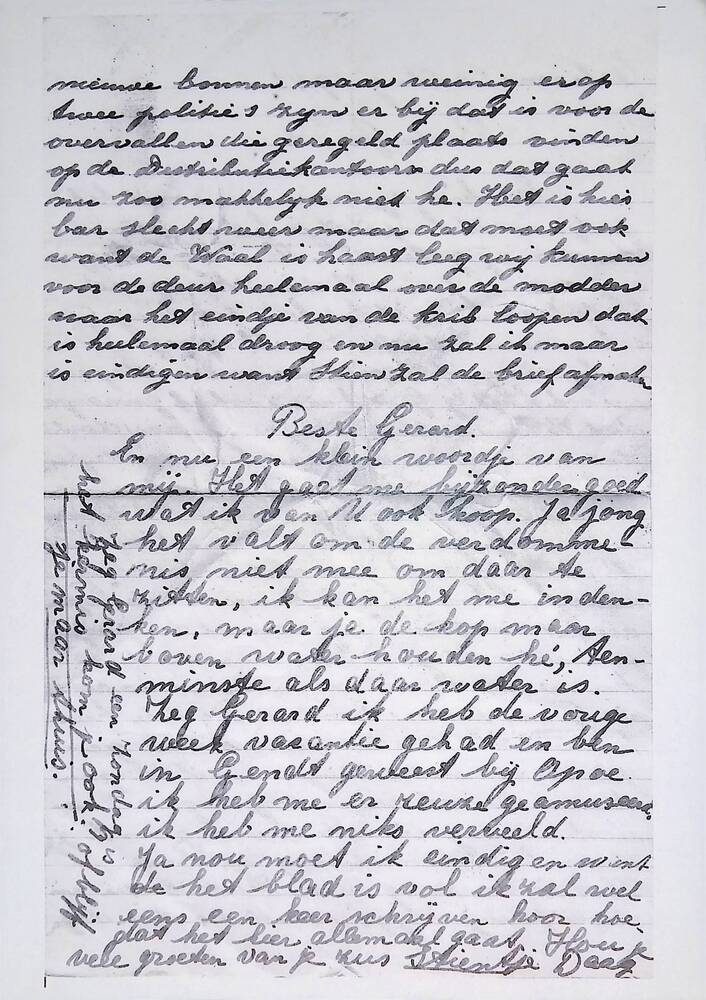 nieuwe bonnen maar weinig er op
twee politie's zyn er bij dat is voor de
overvallen die geregeld plaats vinden
op de Destributiekantoors dus dat gaat
nu zoo makkelyk niet he. Het is hier
bar slecht weer maar dat moet ook
want de Waal is haast leeg wij kunnen
voor de deur heelemaal over de modder
naar het eindje van de krib loopen dat
is heelemaal droog en nu zal ik maar
is eindigen want Stien zal de brief afmaken
Beste Gerard.
En nu een klein woordje van
mij. Het gaat me bijzonder goed
wat ik van U ook hoop. Ja jong
het valt om de verdomme-
nis niet mee om daar te
zitten, ik kan het me inden-
ken, maar ja de kop maar
boven water houden hé, ten-
minste als daar water is.
Zeg Gerard ik heb de vorige
week vacantie gehad en ben
in Gendt geweest bij Opoe.
ik heb me er reuze geamuseerd.
ik heb me niks verveeld.
Ja nou moet ik eindigen want
de het blad is vol ik zal wel
eens een keer schrijven hoor hoe-
dat het hier allemaal gaat. Hou je
vele groeten van je zus Stientje Daag
Zeg Gerard een Zondag is
het kermis kom je ook of blijf
je maar thuis.